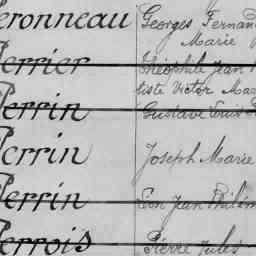 Peronneau Georges Fernand
Marie
Perrier Théophile Jean
liste Victor
Perrin Gustave Louis
Perrin Joseph Marie
Perrin Léon Jean
Perrois Pierre Jules